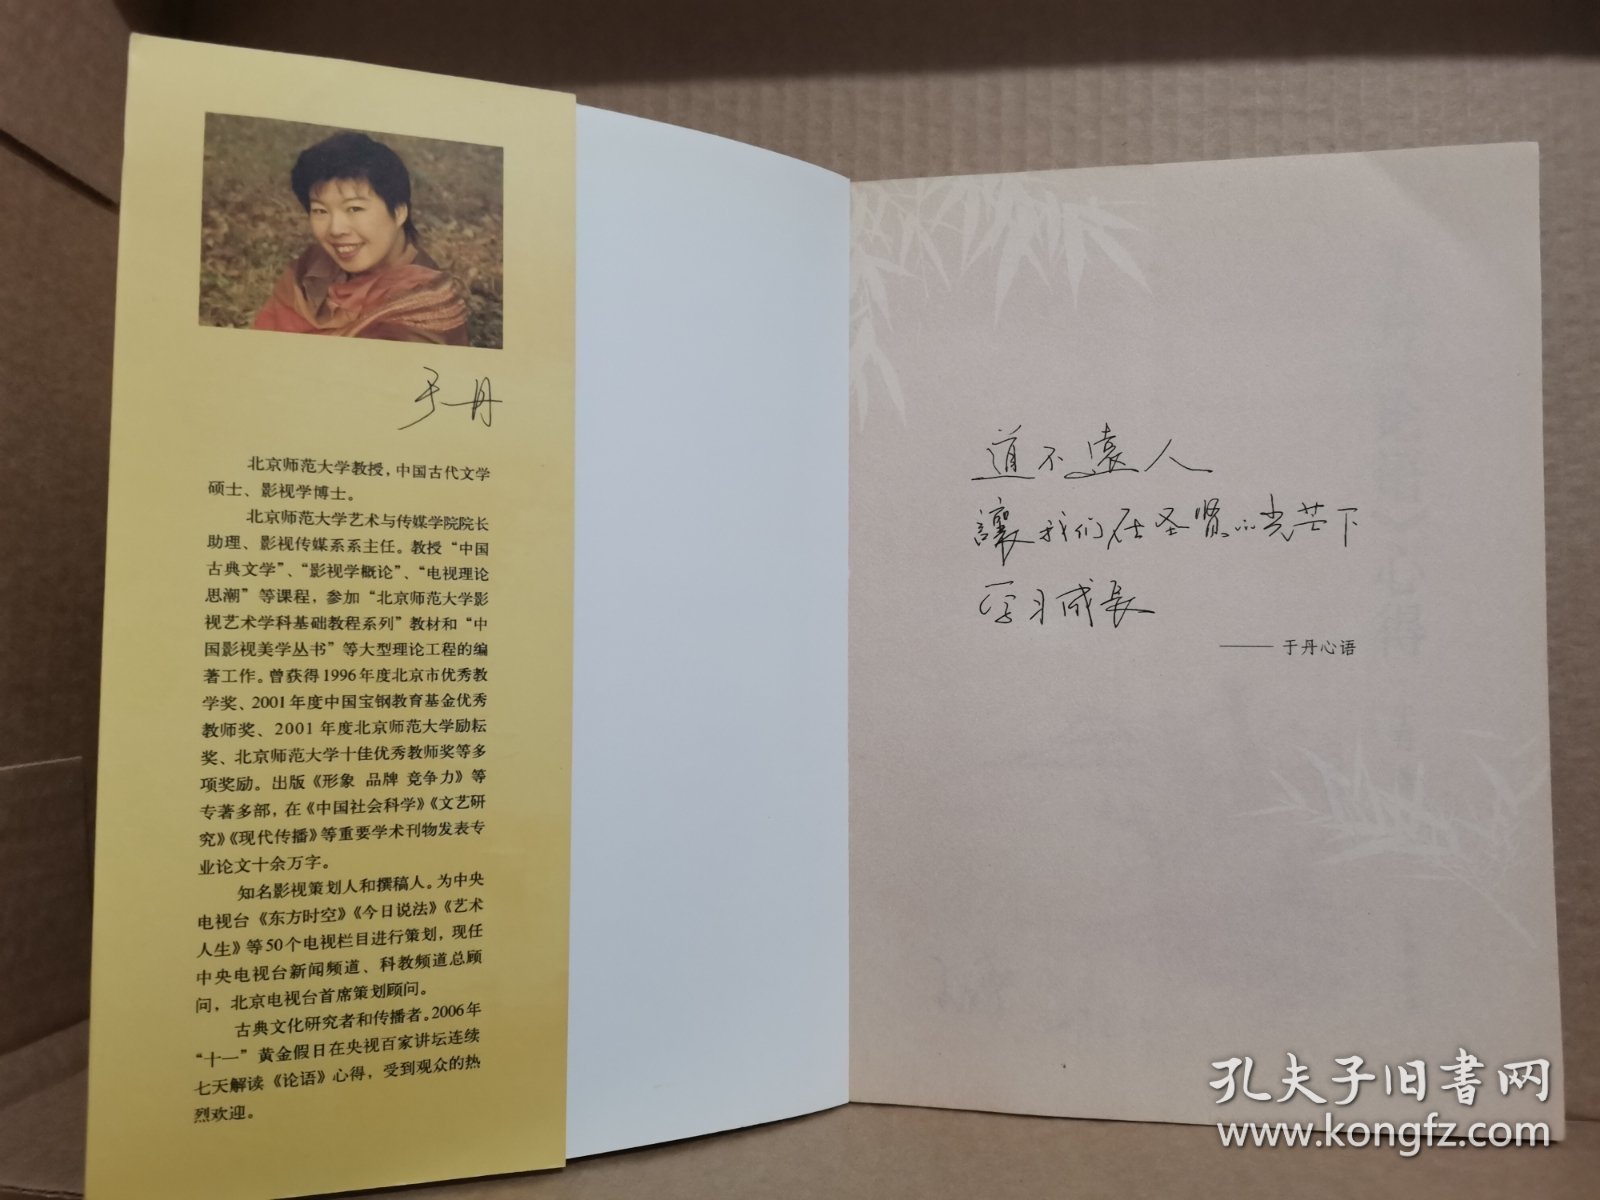 于丹
北京师范大学教授，中国古代文学
硕士、影视学博士。
北京师范大学艺术与传媒学院院长
助理、影视传媒系系主任。教授“中国
古典文学”、“影视学概论”、“电视理论
思潮”等课程，参加“北京师范大学影
视艺术学科基础教程系列”教材和“中
国影视美学丛书”等大型理论工程的编
著工作。曾获得1996年度北京市优秀教
学奖、2001年度中国宝钢教育基金优秀
教师奖、2001年度北京师范大学励耘
奖、北京师范大学十佳优秀教师奖等多
项奖励。出版《形象 品牌 竞争力》等
专著多部，在《中国社会科学》《文艺研
究》《现代传播》等重要学术刊物发表专
业论文十余万字。
知名影视策划人和撰稿人。为中央
电视台《东方时空》《今日说法》《艺术
人生》等50个电视栏目进行策划，现任
中央电视台新闻频道、科教频道总顾
问，北京电视台首席策划顾问。
古典文化研究者和传播者。2006年
“十一”黄金假日在央视百家讲坛连续
七天解读《论语》心得，受到观众的热
烈欢迎。
道不遠人
讓我们在圣贤的光芒下
学习成長
—— 于丹心语
孔夫子旧書网
www.kongfz.com